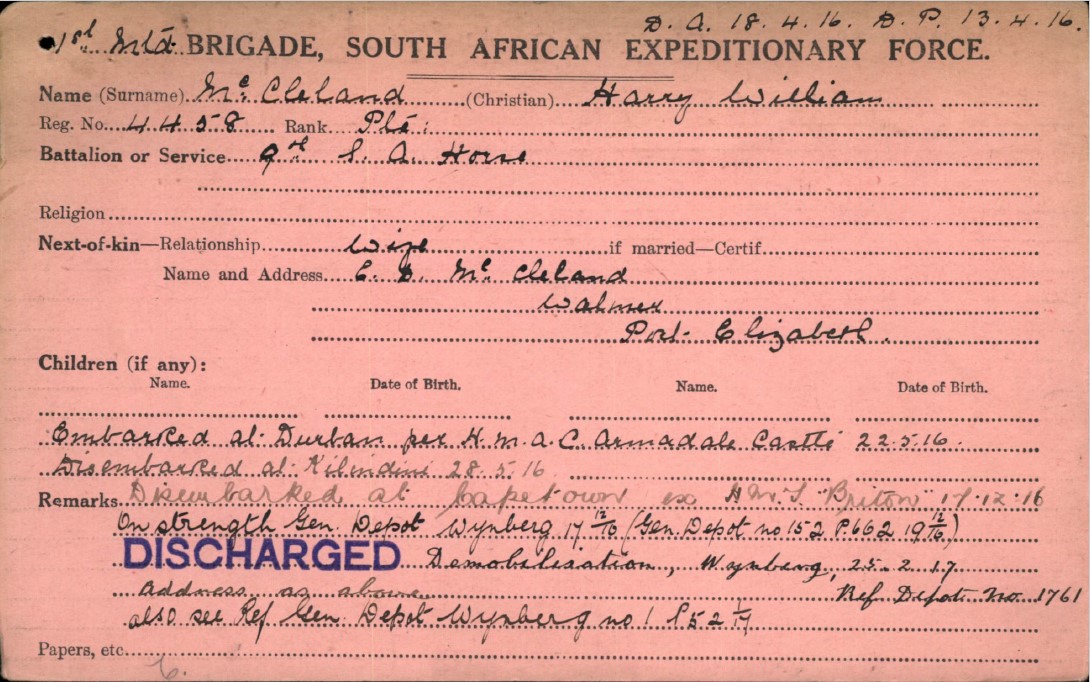 D. A. 18.4.16. D. P. 13.4.16.
1st Mtd BRIGADE, SOUTH AFRICAN EXPEDITIONARY FORCE.
Name (Surname) McCleland (Christian) Harry William
Reg. No. 4458 Rank Pte:
Battalion or Service 9th S. A. Horse
Religion
Next-of-kin—Relationship Wife if married—Certif.
Name and Address E. D. McCleland
Walmer
Port Elizabeth.
Children (if any):
Name. Date of Birth. Name. Date of Birth.
Embarked at Durban per H.M.A.C. Armadale Castle 22.5.16.
Disembarked at Kilindini 28.5.16
Remarks Disembarked at Capetown ex HMT "Briton" 17.12.16
On strength Gen. Depot Wynberg 17 12/16 (Gen. Depot no 152 P.662 19 12/16)
DISCHARGED Demobilisation, Wynberg, 25.2.17
Address as above Ref Depot No. 1761
also see Ref Gen. Depot Wynberg no 1 P52 1/17
Papers, etc.